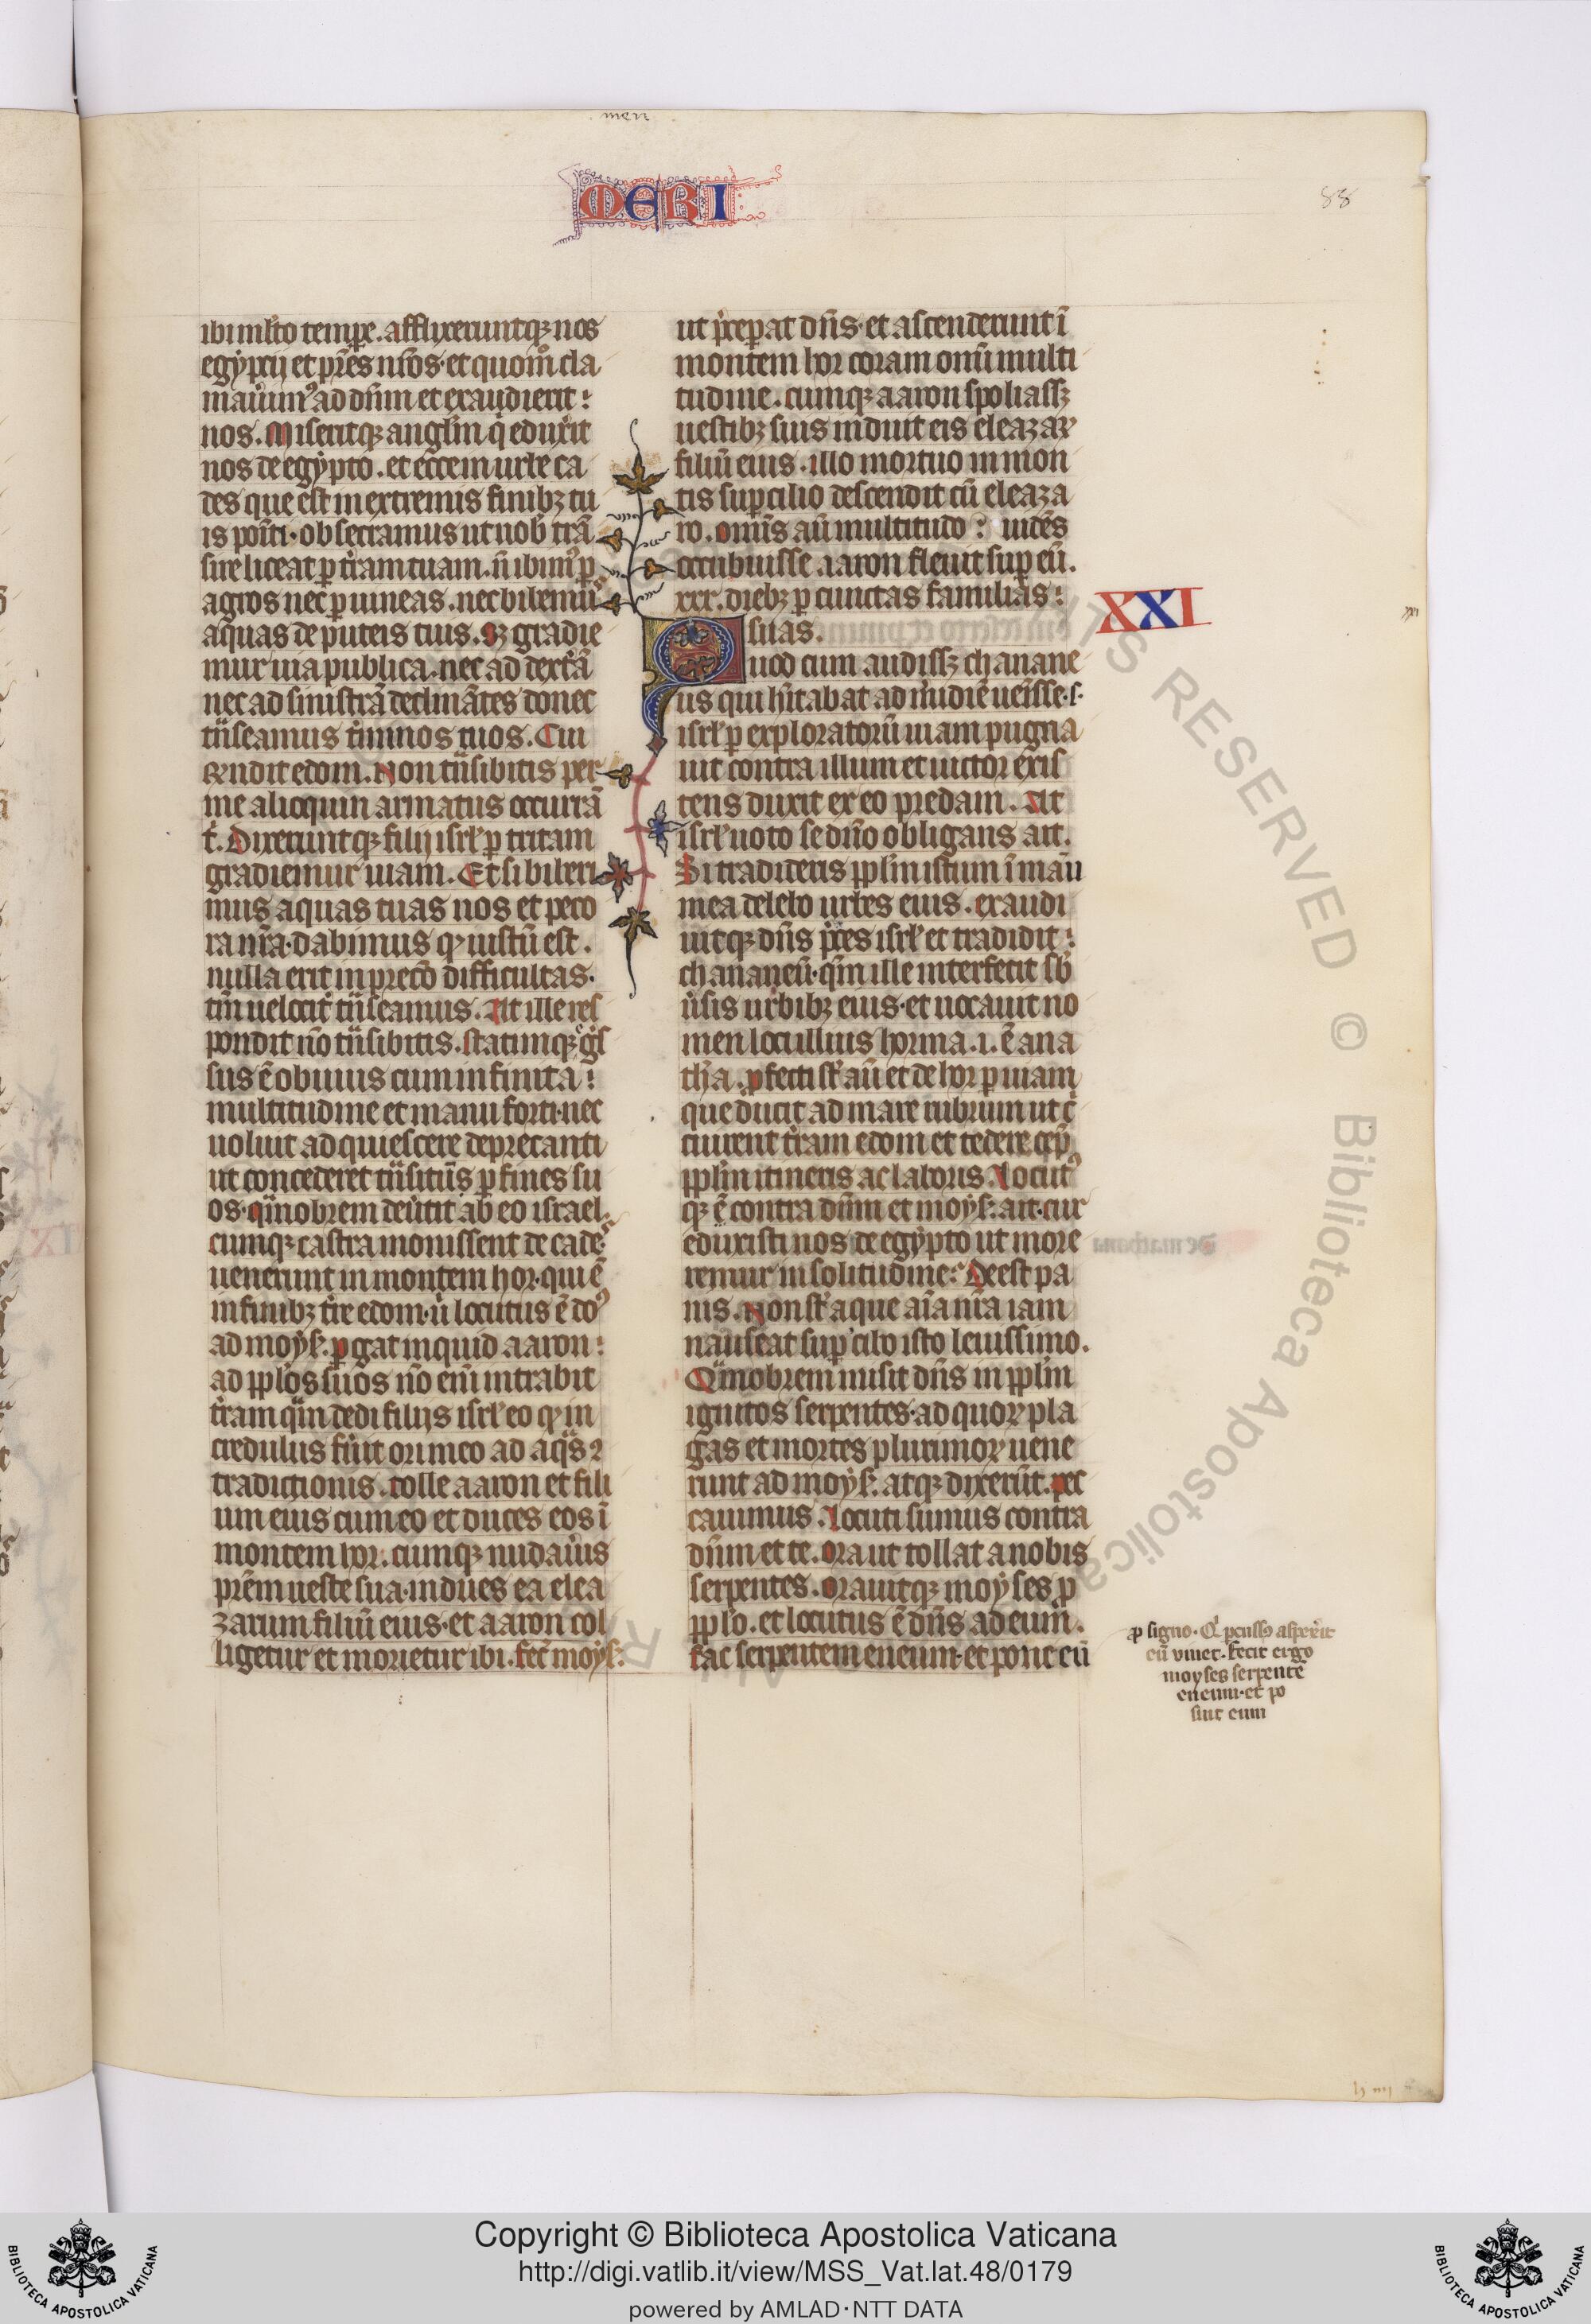 men
MERI
88
ibi ml̃to tempr̃e. afflixeruntq; nos
egyptij et pr̃es nr̃os. et quom̊ cla
mauim᷒ ad dñm et exaudierit:
nos. Miseritq; angl̃m q̇ eduxit
nos de egypto. et ecce in urbe ca
des que est in extremis finibz tu
is poĩti. obsecramus ut nob̃ trã
sire liceat ꝑ t̃ram tuam. ñ ibim᷒ ꝑ
agros nec ꝑ uineas. nec bibemus
aquas de puteis tuis. Sz gradie
mur uia publica. nec ad dext̃ã
nec ad sinistrã declinãtes donec
tñseamus t̃minos tuos. Cui
rñdit edom. Non tñsibitis per
me alioquin armatus occurrã
t̃. Dixeruntq; filij isrl̃ ꝑ tritam
gradiemur uiam. Et si biberi
mus aquas tuas nos et peco
ra nr̃a. dabimus qꝫ iustũ est.
nulla erit in precõ difficultas.
tm̃ uelocit̃ tñseamus. At ille res
pondit nõ tñsibitis. statimq; eg̃s
sus ẽ obuius cum infinita:
multitudine et manu forti. nec
uoluit adquiescere deprecanti
ut concederet tñsitũs ꝑ fines su
os. qm̃obrem deũtit ab eo israel.
cumq; castra mouissent de cades
uenerunt in montem hor. qui ẽ
in finibz t̃re edom. ũ locutus ẽ do᷒
ad moys̃. pergat inquid aaron:
ad ppl̃os suos nõ eni᷒ intrabit
t̃ram qm̃ dedi filijs isrl̃ eo qꝫ in
credulus fuĩt ori meo ad aq̃s ꝯ
tradictionis. tolle aaron et fili
um eius cum eo et duces eos ĩ
montem hor. cumq; nudaũis
pr̃em ueste sua. indues ea elea
zarum filiũ eius. et aaron col
ligetur et morietur ibi. fec̃ moys̃.
ut p̃ceperat dñs. et ascenderunt ĩ
montem hor coram omĩ multi
tudine. cumq; aaron spoliassz
uestibz suis induit eis eleazaꝝ
filiũ eius. illo mortuo in mon
tis sup̃cilio descendit cũ eleaza
ro. omĩs aũ multitudo: uidẽs
occubuisse aaron fleuit sup eũ.
xxx. diebz ꝑ cunctas familias:
suas.
XXI
xxi
Quod cum audissz chanane
us qui hĩtabat ad m̃idiẽ uẽisse. s.
isrl̃ ꝑ exploratorũ uiam pugna
uit contra illum et uictor exis
tens duxit ex eo predam. At
isrl̃ uoto se dño obligans ait.
Si tradideris ppl̃m istum ĩ manu
mea delebo urbes eius. exaudi
uitq; dñs p̃ces isrl̃ et tradidit:
chananeũ. qm̃ ille interfecit sb̃
ũsis urbibz eius. et uocauit no
men loci illius horma. i. ẽ ana
th̃a. ꝓfecti st̃ aũ et de hor ꝑ uiam
que ducit ad mare rubrum ut c̃
cuirent t̃ram edom et tedere cep̃
ppl̃m itineris ac laboris. Locut᷒
q; ẽ contra dñm et moys̃. ait. cur
eduxisti nos de egypto ut more
remur in solitudine: Deest pa
nis. Non st̃ aque aĩa nr̃a iam
nauseat sup̃ cibo isto leuissimo.
Qm̃obrem misit dñs in ppl̃m
ignitos serpentes. ad quoꝝ pla
gas et mortes plurimoꝝ uene
runt ad moys̃. atq; dixerũt. pec
cauimus. Locuti sumus contra
dñm et te. ora ut tollat a nobis
serpentes. orauitq; moyses ꝓ
ppl̃o. et locutus ẽ dñs ad eum.
fac serpentem eneum. et pone eũ
ꝓ signo. Qi ꝑcussꝰ aspexĩt
eũ viuet. fecit ergo
moyses serpentẽ
eneum. et po
suit eum
RESERVED © Biblioteca Apostolica
Copyright © Biblioteca Apostolica Vaticana
http://digi.vatlib.it/view/MSS_Vat.lat.48/0179
powered by AMLAD·NTT DATA
BIBLIOTECA APOSTOLICA VATICANA
BIBLIOTECA APOSTOLICA VATICANA